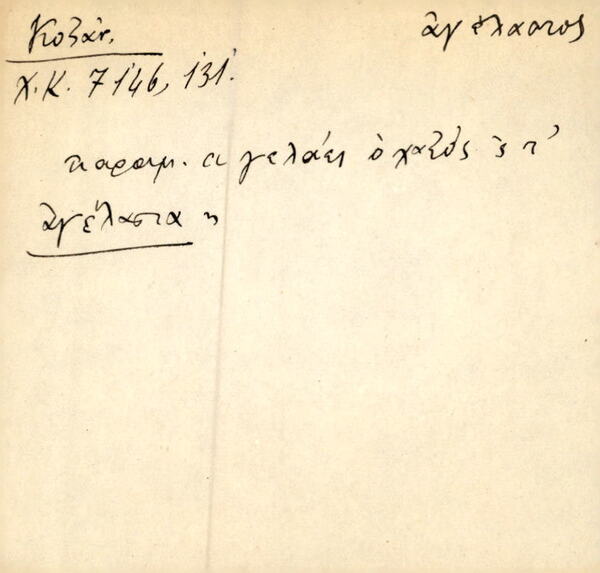 Κοζάν. ἀγέλαστος
Χ.Κ. 7146, 131.
παροιμ. « γελάει ὁ χαζὸς ς τ'
ἀγέλαστα »